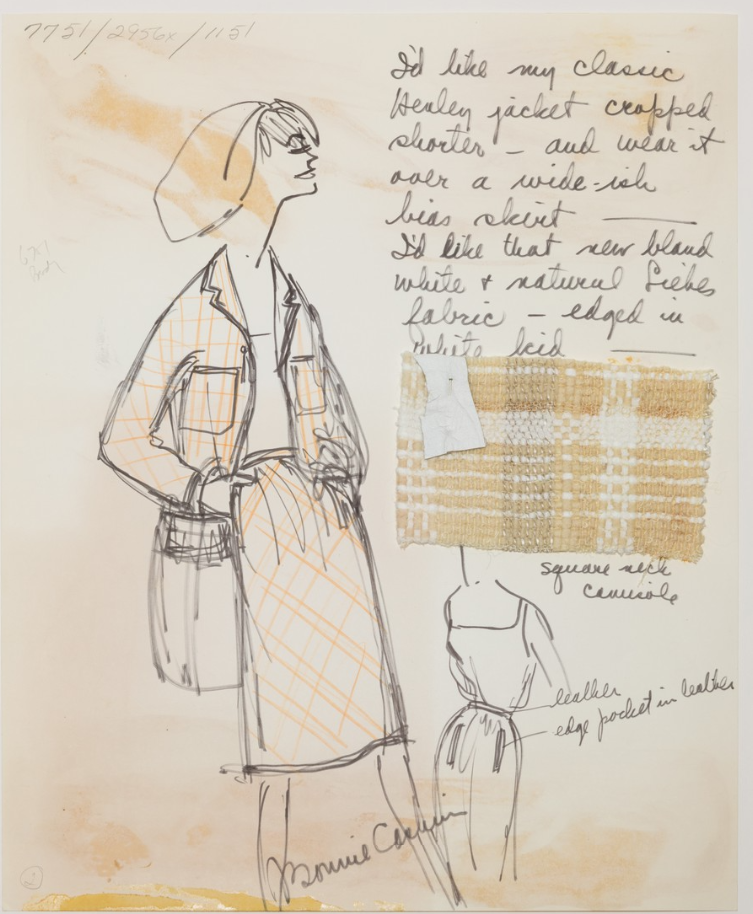 7751/2956x/1151
I'd like my classic
Henley jacket cropped
shorter – and wear it
over a wide-ish
bias skirt ———
I'd like that new bland
white + natural
fabric – edged in
white kid ———
square neck
camisole
leather
edge pocket in leather
Bonnie Cashin